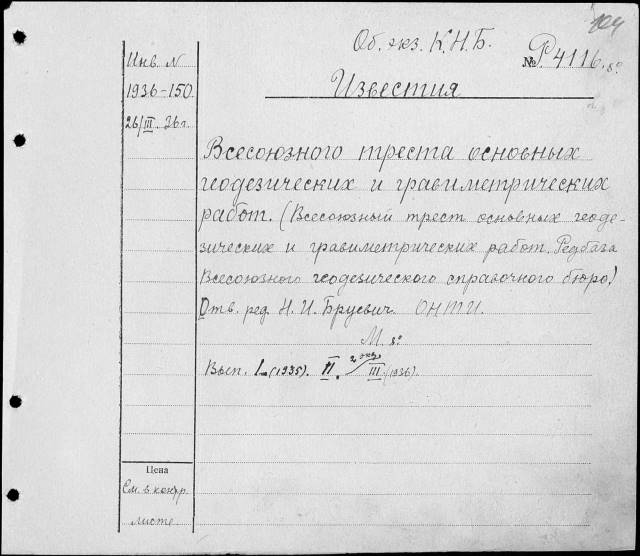 104
Об. экз. К.Н.Б.
№ Р 4116. 8°
Известия
Инв. N
1936-150.
26/III. 36 г.
Всесоюзного треста основных
геодезических и гравиметрических
работ. (Всесоюзный трест основных геоде-
зических и гравиметрических работ. Редбаза
Всесоюзного геодезического справочного бюро)
Отв. ред. Н. И. Бруевич. ОНТИ.
М. 8°
Вып. I (1935). II. 2 экз III (1936).
Цена
См. в контр.
листе.